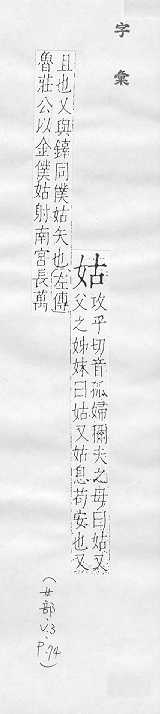 字彙
姑
攻乎切音孤婦稱夫之母曰姑又
父之姊妹曰姑又姑息苟安也又
且也又與鴣同僕姑矢也左傳
魯莊公以金僕姑射南宮長萬
(女部.V.3 P.74)